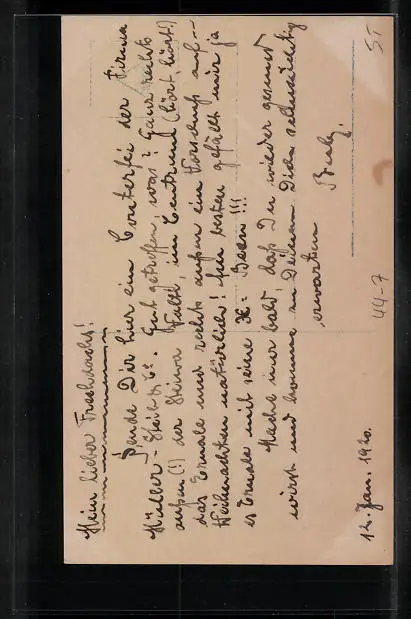 Mein lieber Frechdachs!
Sende Dir hier ein Conterfei der Firma
Müller - & Co. Gut getroffen, was? Ganz rechts
außen (!) der Steuwa Falti, im Centrum (hört, hört!)
das Ernale und rechts außen ein Vorschuß auf
Weihnachten natürlich! Am besten gefällt mir ja
s' Ernale mit seine X= Been!!!
Mache nur bald, daß Du wieder gesund
wirst und komme zu Deinem Dich sehnsüchtig
erwarten
12. Jan. 1920.
44-7